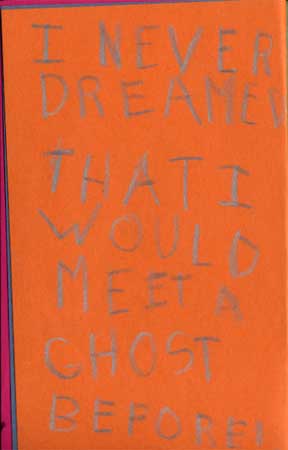 I NEVER
DREAMED
THAT I
WOULD
MEET A
GHOST
BEFORE!